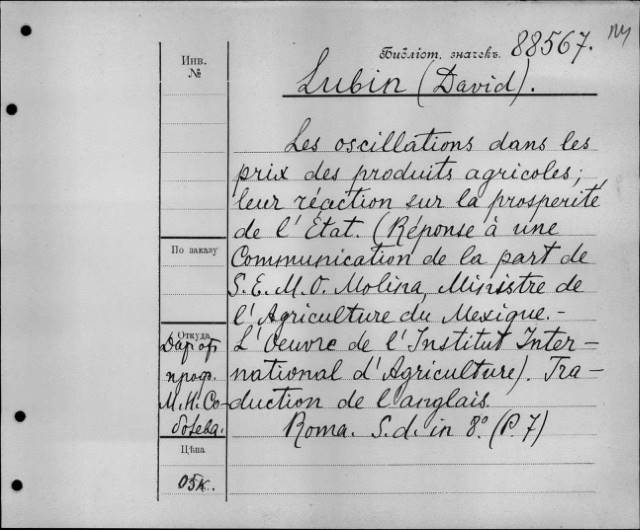 Библіот. значекъ 88567.
Инв.
№
Lubin (David).
Les oscillations dans les
prix des produits agricoles;
leur réaction sur la prosperité
de l'État. (Réponse à une
По заказу
Communication de la part de
S. E. M. O. Molina, Ministre de
l'Agriculture du Mexique.-
Откуда
L'Oeuvre de l'Institut Inter-
national d'Agriculture). Tra-
duction de l'anglais.
Roma. S. d. in 8º. (P. 7)
Дар от
проф.
М. Н. Со-
болева.
Цѣна
05к.